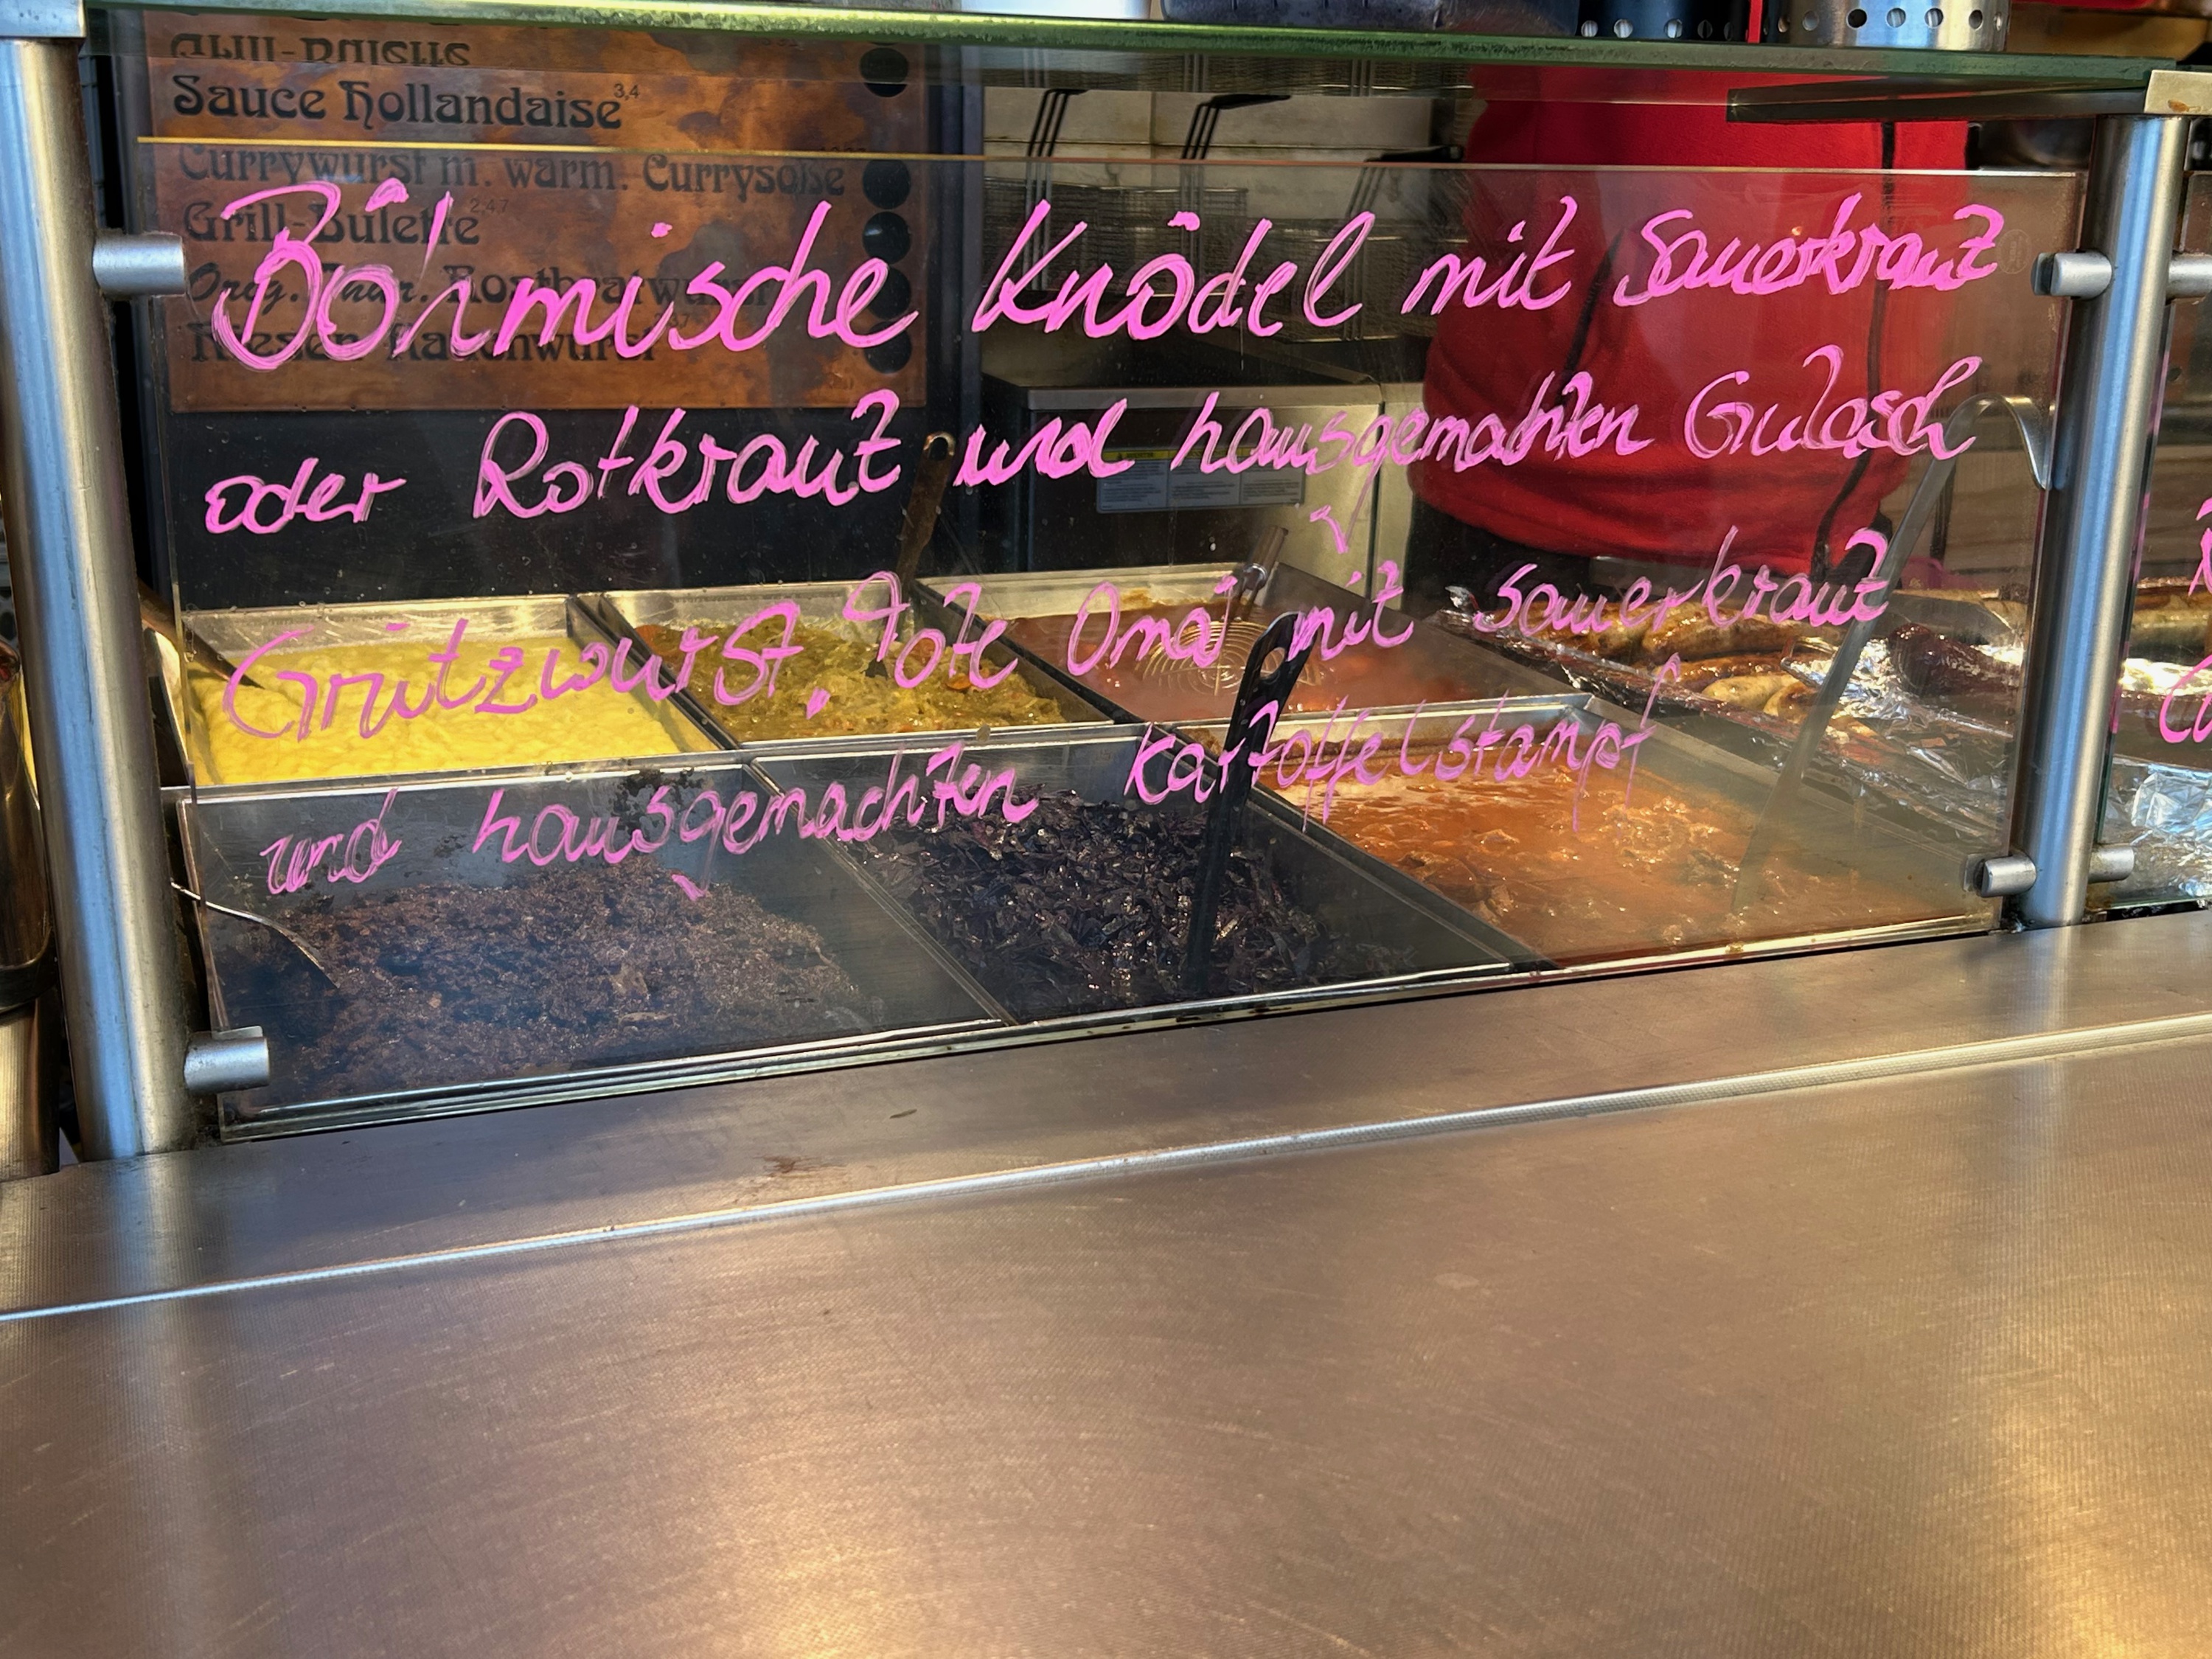 Grill-Bulette
Sauce Hollandaise 3,4
Currywurst m. warm. Currysoße
Grill-Bulette 2,4,7
Orig. Thür. Rostbratwurst
Riesen-Krakauer
Böhmische Knödel mit Sauerkraut
oder Rotkraut und hausgemachten Gulasch
Grützwurst, "Tote Oma" mit Sauerkraut
und hausgemachten Kartoffelstampf